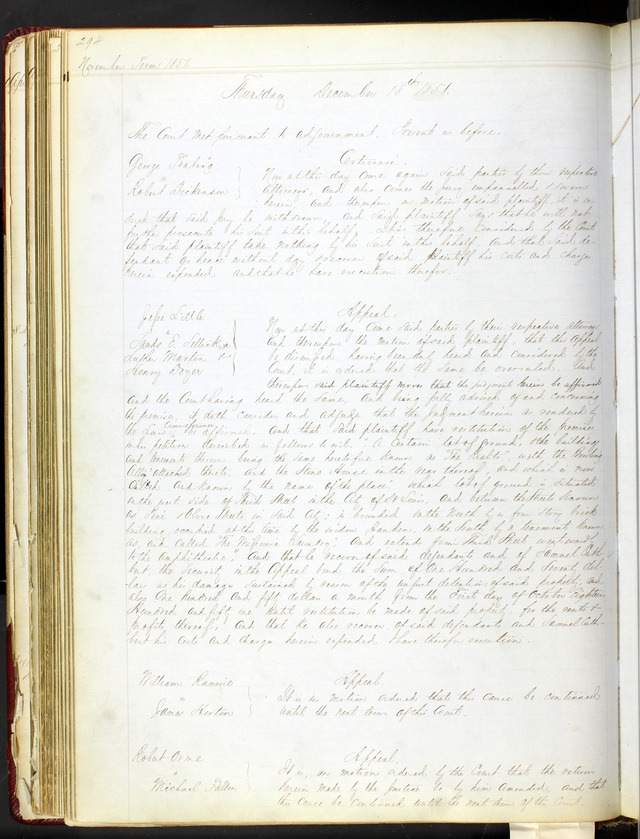 294
November Term 1851.
Thursday December 18th 1851.
The Court met pursuant to adjournment. Present as before.
George Trabing
vs
Robert Dickenson
Certiorari.
Now at this day come again said parties by their respective
attorneys, and also comes the jury empannelled & sworn
herein and thereupon on motion of said plaintiff it is or-
dered that said Jury be withdrawn, and said plaintiff says that he will not
further prosecute his suit in this behalf, It is therefore considered by the Court
that said plaintiff take nothing by his suit in this behalf and that said de-
fendant go hence without day & recover of said plaintiff his costs and charges
herein expended and that he have execution therefor.
Jesse Little
vs
E. Sellick,
Luther Martin &
Henry Boyer
Appeal.
Now at this day come said parties by their respective attorneys
and thereupon the motion of said plaintiff, that this Appeal
be dismissed having been duly heard and considered by the
Court, it is ordered that the same be overruled. And
thereupon said plaintiff moves that the judgment herein be affirmed
And the Court having heard the same, and being fully advised of and concerning
the premises, it doth consider and adjudge that the judgment herein as rendered by
the Justice be affirmed. And that said plaintiff have restitution of the premises
in his petition described as follows to wit, "A Certain lot of ground, & the buildings
and tenements thereon being the same heretofore known as "The" with the
attached thereto, and the Stone House in the rear thereof, and which is now
Called and known by the name of "the place" which lot of ground is situated
in the west side of Third Street in the City of St Louis, and between the streets known
as Pine & Olive Streets in said City, is bounded on the North by a four story brick
building, occupied at this time by the widow, on the South by a tenement known
as and called "The Missouri" And extends from Third Street westwardly
to the Amphitheatre" And that he recover of said defendants and of Samuel Cuth-
bert the security in the Appeal bond the Sum of One Hundred and Seventy dol-
lars as his damages sustained by reason of the unjust detention of said property, and
also One hundred and fifty dollars a month from the First day of October Eighteen
Hundred and fifty one until restitution be made of said property for the rents &
profits thereof. And that he also recover of said defendants and Samuel Cuth-
bert his costs and charges herein expended & have therefor execution.
William Rannie
vs
James Horton
Appeal.
It is on motion ordered that this cause be continued
until the next term of this Court.
Robert Orme
vs
Michael Fallen
Appeal.
It is, on motion ordered by the Court that the return
herein made by the Justice be by him amended, and that
this Cause be Continued until the next term of this Court.